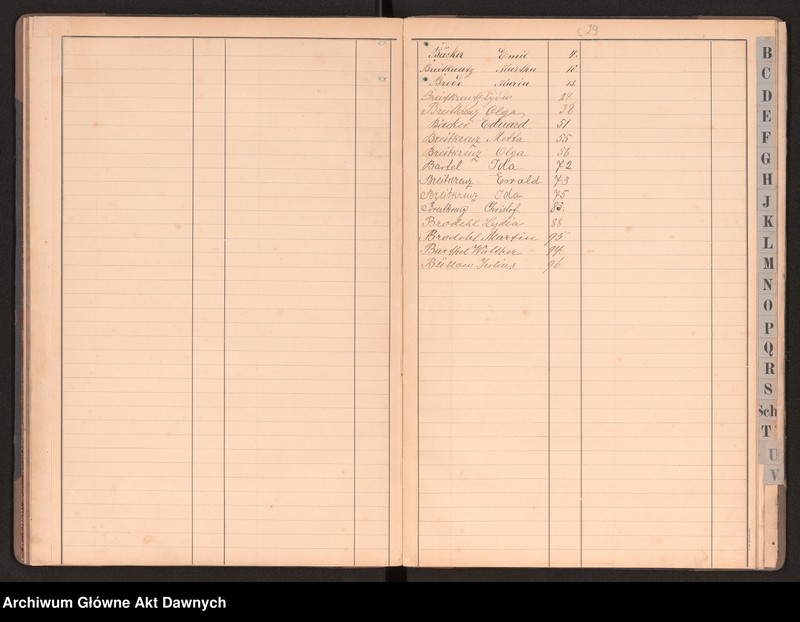 29
Emil 4.
Breitkreutz Martha 10.
Brode Maria 12.
Breitkreutz 24.
Breitkreuz Olga 38
Eduard 51
Breitkreuz Motta 55
Breitkreuz Olga 56
Bartel Ida 72
Breitkreuz Ewald 73
Breitkreuz Ida 75
Breitkreuz Christof 83.
Brodehl Lydia 88
Brodehl Martin 95
Barthel Walther 94.
Büttow Julius 96
B
C
D
E
F
G
H
J
K
L
M
N
O
P
Q
R
S
Sch
T
U
V
Archiwum Główne Akt Dawnych